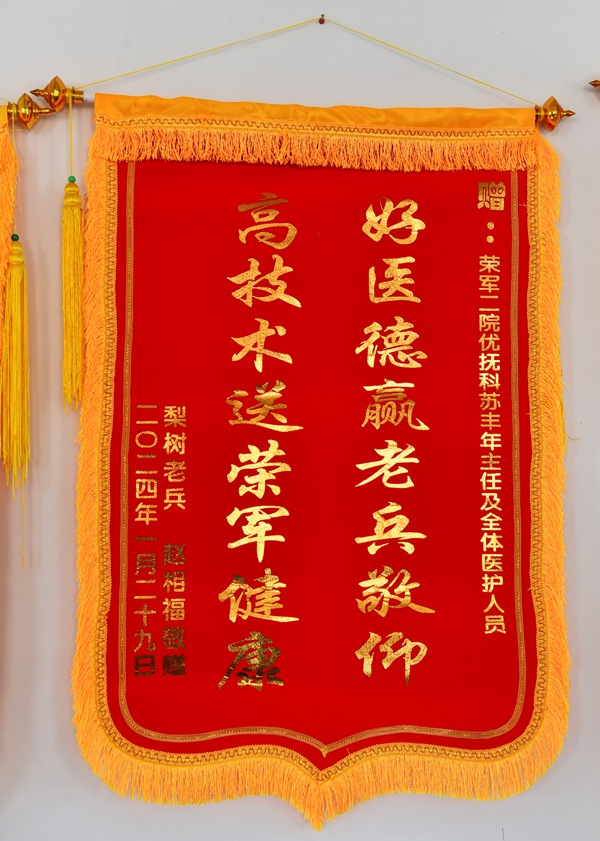 赠：荣军二院优抚科苏丰年主任及全体医护人员
好医德赢老兵敬仰
高技术送荣军健康
梨树老兵 赵相福敬赠
二〇二四年一月二十九日